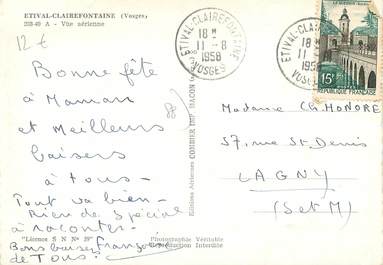 ETIVAL-CLAIREFONTAINE (Vosges)
203-49 A - Vue aérienne
12 €
Bonne fête
à Maman
et Meilleurs
baisers
à tous -
Tout va bien -
Rien de spécial
à raconter -
Bons baisers Françoise
de Tous.
"Licence S N N° 29"
Photographie Véritable
Reproduction Interdite
Editions Aériennes COMBIER IMP. MACON
ETIVAL-CLAIREFONTAINE
18 H
11-8
1958
VOSGES
ETIVAL-CLAIREFONTAINE
18 H
11
1958
VOSGES
LE QUESNOY
15F
REPUBLIQUE FRANÇAISE
Madame Ch. HONORE
57, rue St Denis
LAGNY
(S et M)